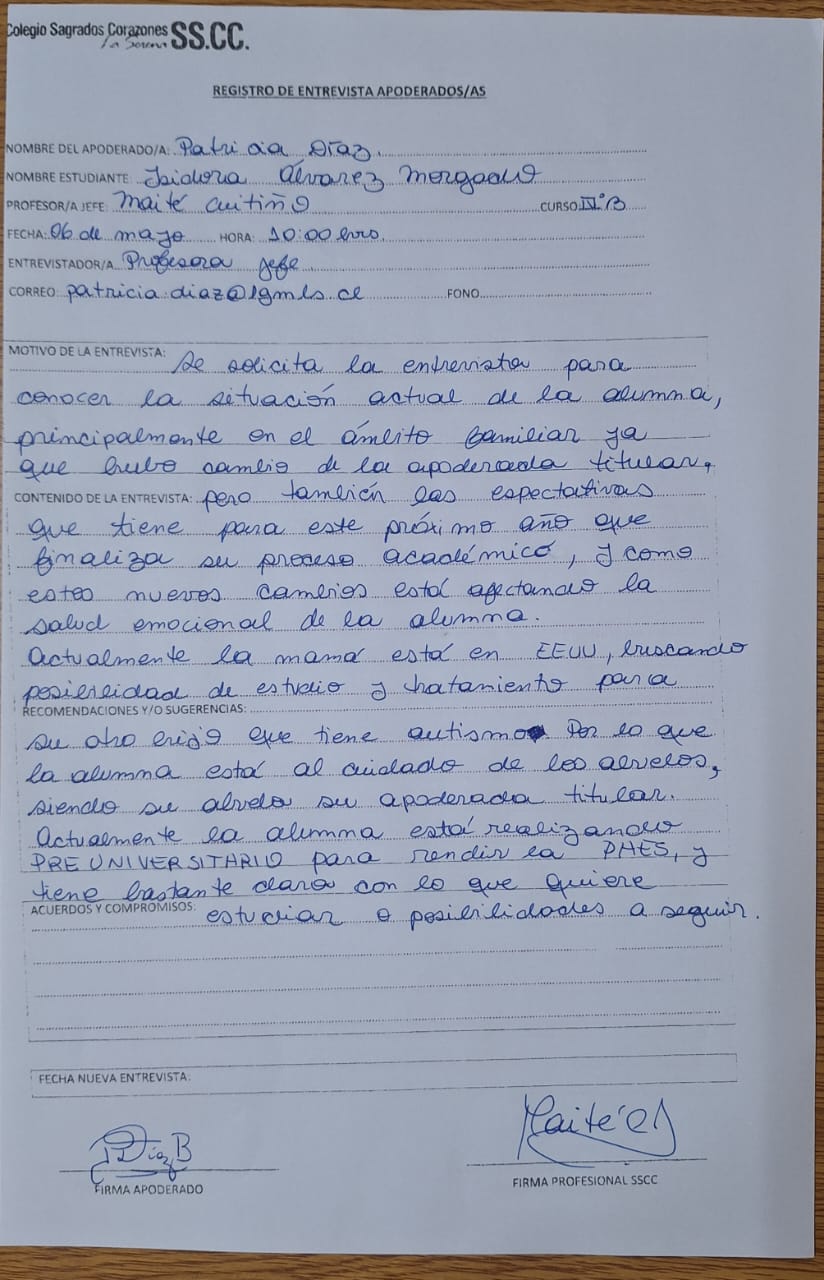 Colegio Sagrados Corazones SS.CC.
La Serena
REGISTRO DE ENTREVISTA APODERADOS/AS
NOMBRE DEL APODERADO/A: Patricia Díaz.
NOMBRE ESTUDIANTE: Isidora Álvarez Morgado
PROFESOR/A JEFE: Maité Cuitiño CURSO: IV°B
FECHA: 06 de mayo HORA: 10:00 hrs.
ENTREVISTADOR/A: Profesora jefe
CORREO: patricia.diaz@lgmls.cl FONO
MOTIVO DE LA ENTREVISTA: Se solicita la entrevista para
conocer la situación actual de la alumna,
principalmente en el ámbito familiar ya
que hubo cambio de la apoderada titular,
CONTENIDO DE LA ENTREVISTA: pero también las espectativas
que tiene para este próximo año que
finaliza su proceso académico, y como
estos nuevos cambios está afectando la
salud emocional de la alumna.
Actualmente la mamá está en EEUU, buscando
posibilidad de estudio y tratamiento para
RECOMENDACIONES Y/O SUGERENCIAS:
su otro hijo que tiene autismo. Por lo que
la alumna está al cuidado de los abuelos,
siendo su abuela su apoderada titular.
Actualmente la alumna está realizando
PREUNIVERSITARIO para rendir la PAES, y
tiene bastante claro con lo que quiere
ACUERDOS Y COMPROMISOS: estudiar o posibilidades a seguir.
FECHA NUEVA ENTREVISTA:
PDíaz B Maité C
FIRMA APODERADO FIRMA PROFESIONAL SSCC